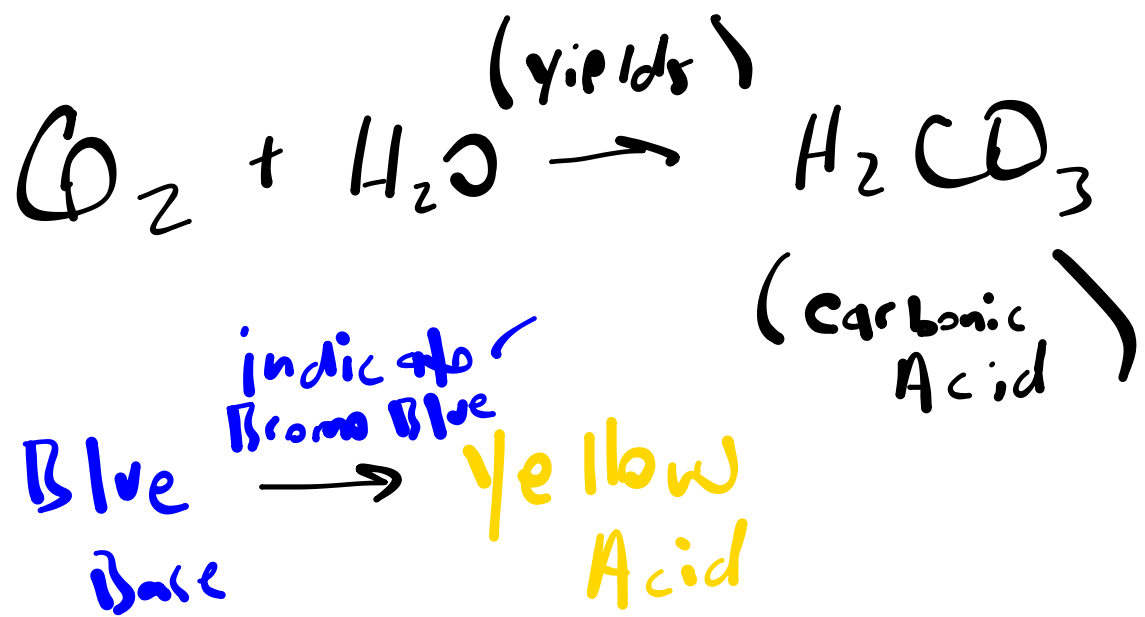 (yields)
CO₂ + H₂O → H₂CO₃
(carbonic
Acid)
indicator
Bromo Blue
Blue → Yellow
Base Acid